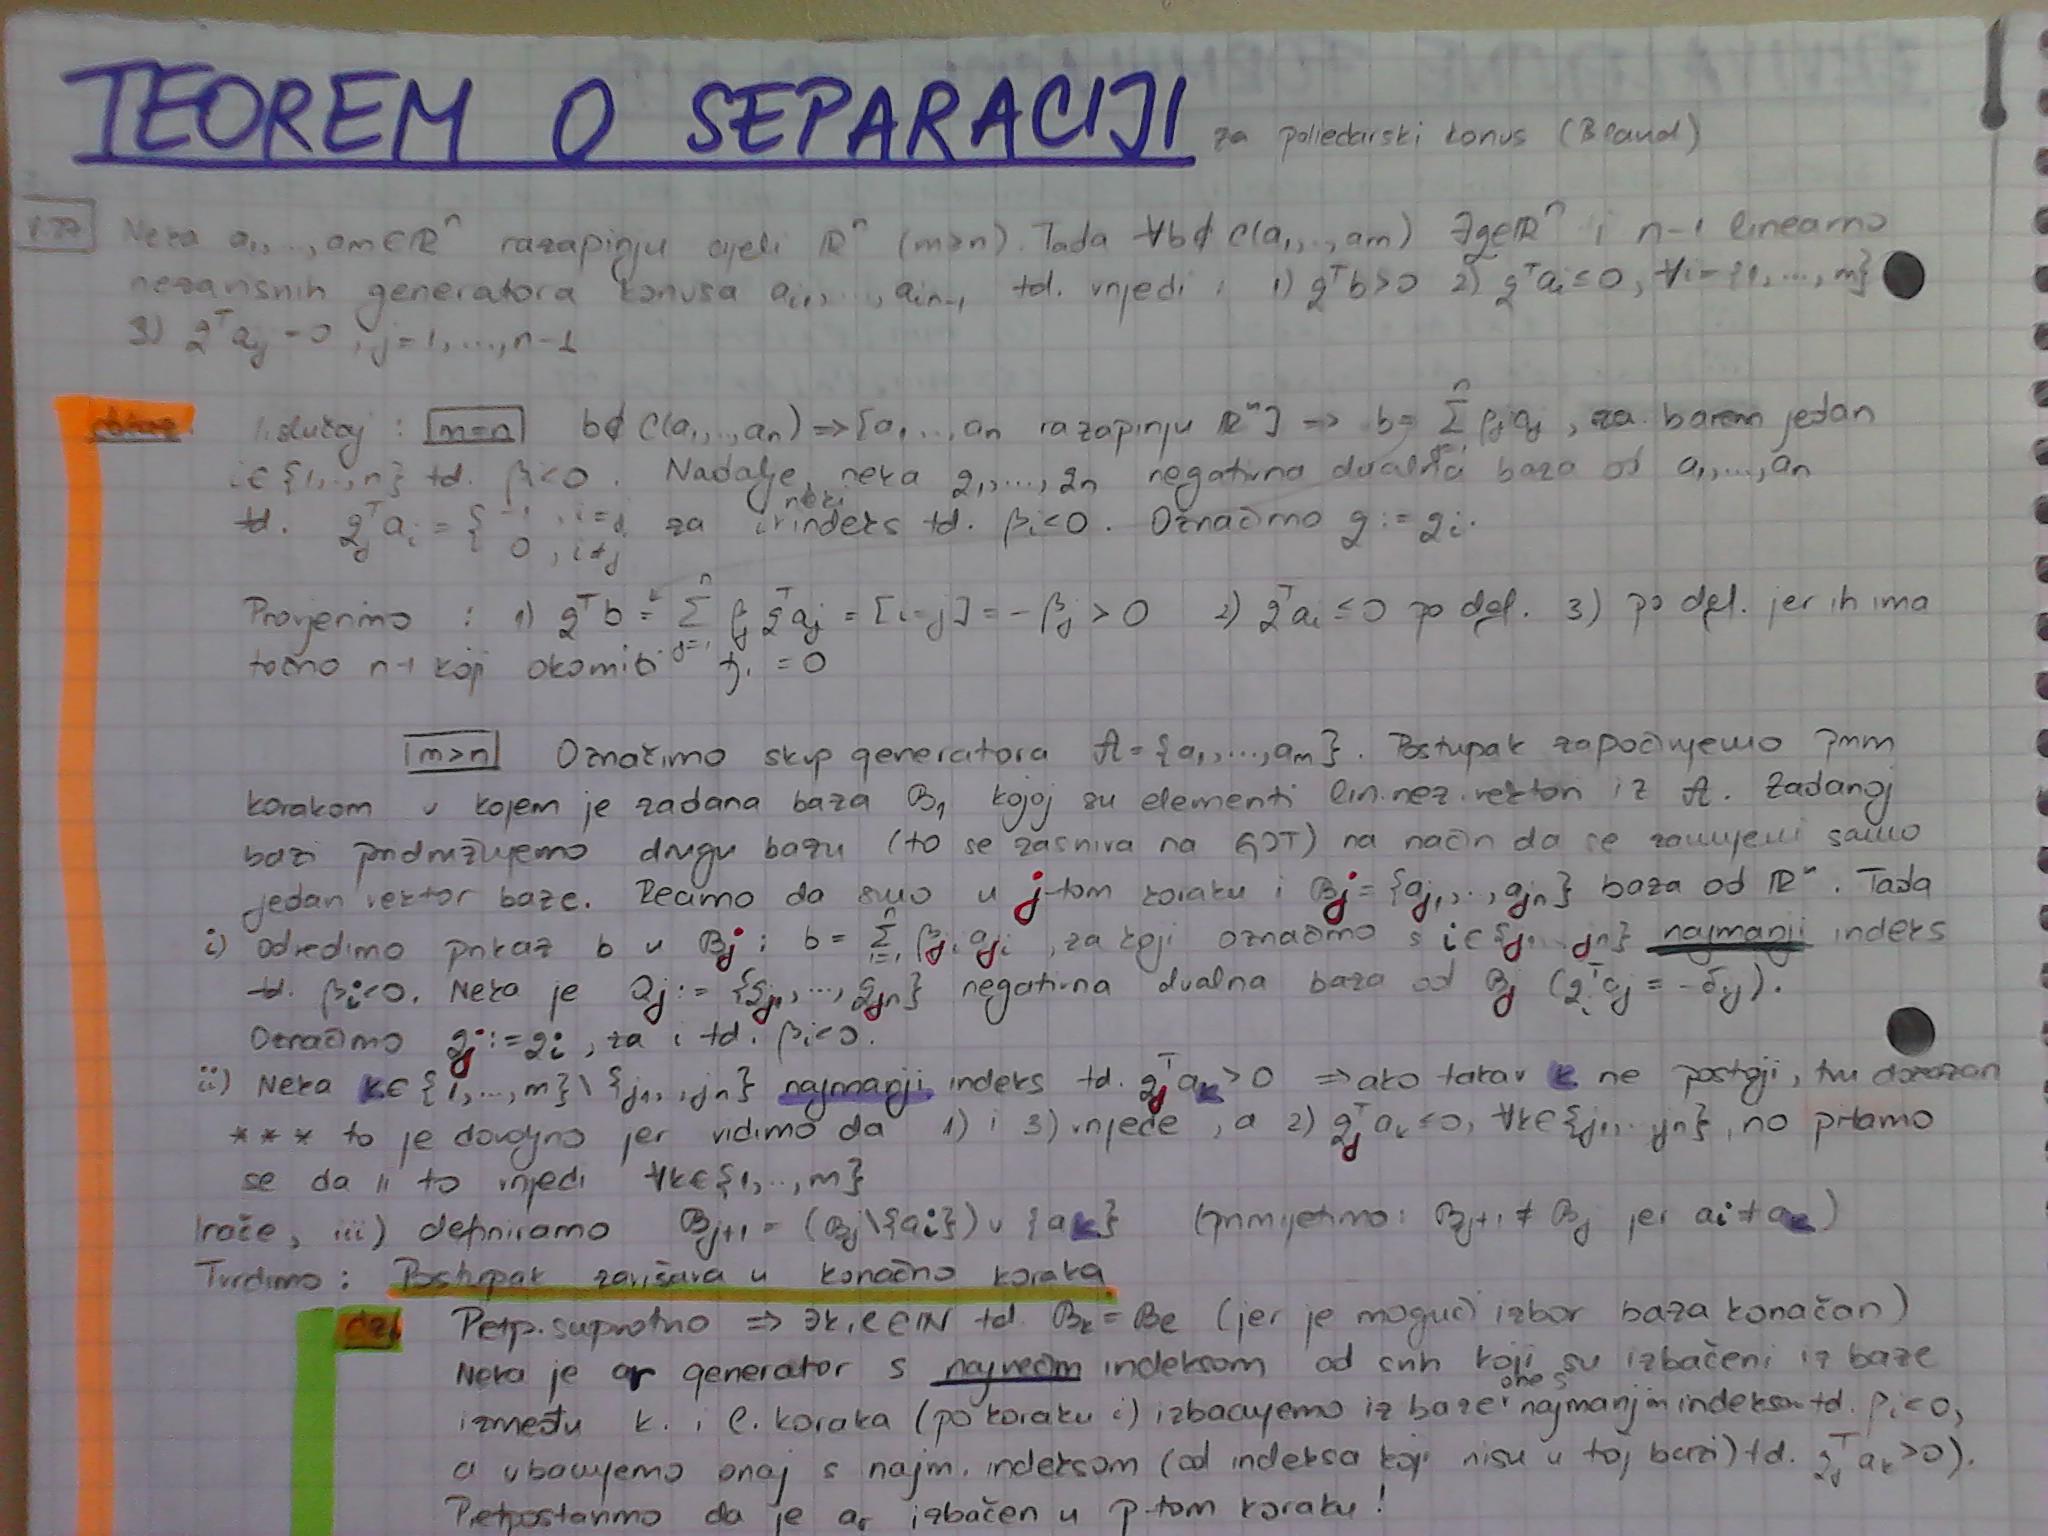 TEOREM O SEPARACIJI za poliedarski konus (Bland)
Neka a₁,...,am∈ℝⁿ razapinju cijeli ℝⁿ (m≥n). Tada ∀b∉C(a₁,..,am) ∃g∈ℝⁿ i n-1 linearno
nezavisnih generatora konusa ai₁,...,ain-1 td. vrijedi: 1) gᵀb>0 2) gᵀai≤0, ∀i={1,...,m}
3) gᵀaij=0, j=1,...,n-1
dokaz 1. slučaj: m=n b∉C(a₁,...,an) ⇒ [a₁,...,an razapinju ℝⁿ] ⇒ b=Σβjaj, za barem jedan
i∈{1,..,n} td. βi<0. Nadalje, neka g₁,...,gn negativna dualna baza od a₁,...,an
td. gjᵀai = { -1, i=j 0, i≠j za neki i indeks td. βi<0. Označimo g:=gi.
Provjerimo: 1) gᵀb = Σ βj gᵀaj = [i=j] = -βj > 0 2) gᵀai≤0 po def. 3) po def. jer ih ima
točno n-1 koji okomiti tj. =0
m>n Označimo skup generatora A={a₁,...,am}. Postupak započinjemo prvim
korakom u kojem je zadana baza B₁ kojoj su elementi lin.nez.vektori iz A. Zadanoj
bazi pridružujemo drugu bazu (to se zasniva na GJT) na način da se zamijeni samo
jedan vektor baze. Recimo da smo u j-tom koraku i Bj={aj₁,..,ajn} baza od ℝⁿ. Tada
i) odredimo prikaz b u Bj: b=Σβji aji, za koji označimo s i∈{j₁...jn} najmanji indeks
td. βi<0. Neka je Qj:={gj₁,...,gjn} negativna dualna baza od Bj (giᵀaj = -δij).
Označimo gj:=gi, za i td. βi<0.
ii) Neka k∈{1,...,m}\{j₁,..,jn} najmanji indeks td. gjᵀak>0 ⇒ ako takav k ne postoji, tm dokazan
*** to je dovoljno jer vidimo da 1) i 3) vrijede, a 2) gjᵀak≤0, ∀k∈{j₁,..jn}, no pitamo
se da li to vrijedi ∀k∈{1,..,m}
Inače, iii) definiramo Bj+1 = (Bj\{ai})∪{ak} (primijetimo: Bj+1≠Bj jer ai≠ak)
Tvrdimo: Postupak završava u konačno koraka
dz/ Petp.suprotno ⇒ ∃k,l∈ℕ td. Bk=Bl (jer je mogući izbor baza konačan)
Neka je ar generator s najvećim indeksom od svih koji su izbačeni iz baze
između k. i l. koraka (po koraku i) izbacujemo iz baze one s najmanjim indeksom td. βi<0,
a ubacujemo onaj s najm. indeksom (od indeksa koji nisu u toj bazi) td. gjᵀak>0).
Petpostavimo da je ar izbačen u p-tom koraku!